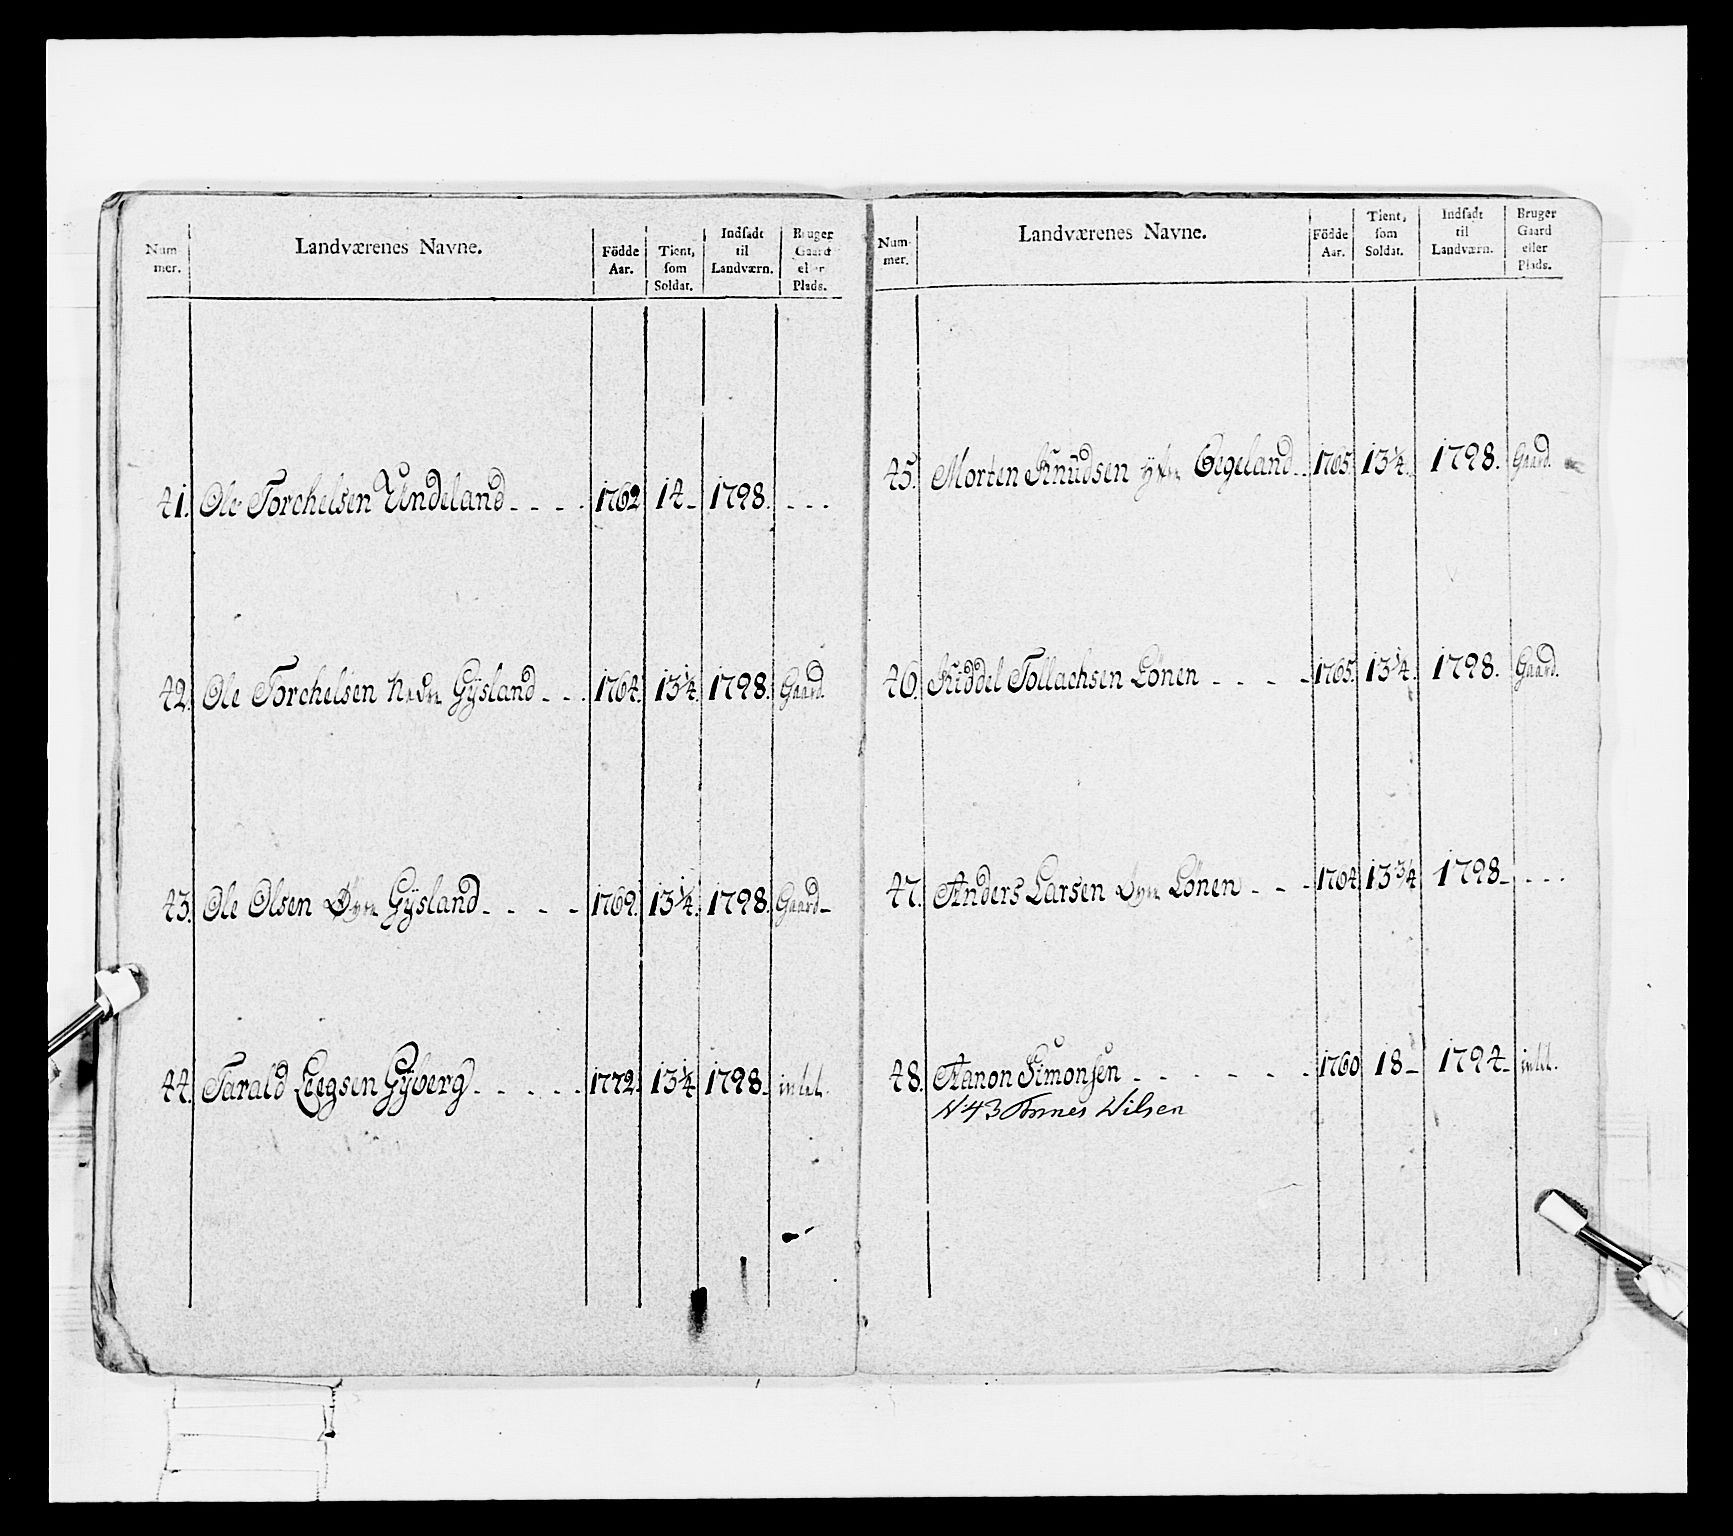 Num-mer. Landværenes Navne. Födde Aar. Tient, som Soldat. Indsadt til Landværn. Bruger Gaard eller Plads.
41. Ole Torchelsen Undeland - - - - 1762 14 - 1798. - - -
42. Ole Torchelsen Nedre Gÿsland - - - 1764. 13¼. 1798. Gaard.
43. Ole Olsen Øvre Gÿsland - - - - 1769. 13¼. 1798. Gaard -
44. Tarald Leegsen Gÿberg - - - - - 1772. 13¼ 1798. intet.
Num-mer. Landværenes Navne. Födde Aar. Tient, som Soldat. Indsadt til Landværn. Bruger Gaard eller Plads.
45. Morten Knudsen Egeland - - 1765. 13¼. 1798. Gaard.
46. Kiddel Tollachsen Lönen - - - - 1765. 13¼. 1798. Gaard.
47. Anders Larsen Øvre Lönen - - - 1764 13¾ 1798 - - - -
48. Aanon Simonsen - - - - - - 1760 18 - 1794 - intet.
N: 43 Tønnes Nilsen